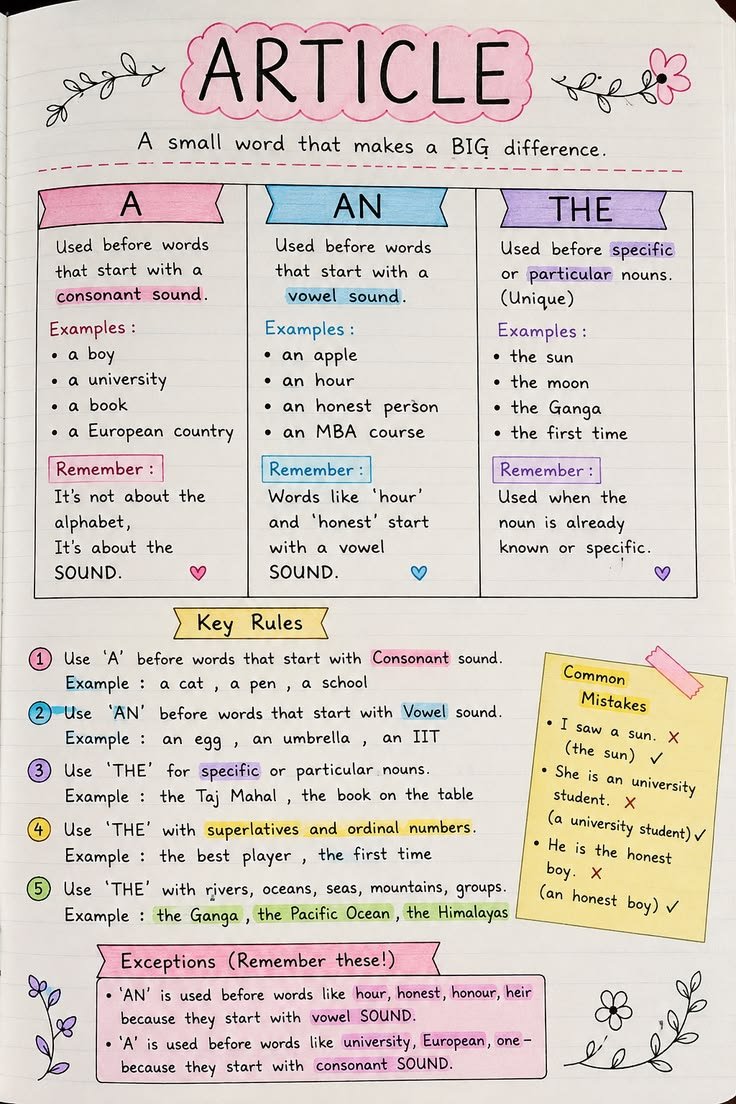 ARTICLE
A small word that makes a BIG difference.
A
Used before words
that start with a
consonant sound.
Examples :
• a boy
• a university
• a book
• a European country
Remember :
It's not about the
alphabet,
It's about the
SOUND.
AN
Used before words
that start with a
vowel sound.
Examples :
• an apple
• an hour
• an honest person
• an MBA course
Remember :
Words like 'hour'
and 'honest' start
with a vowel
SOUND.
THE
Used before specific
or particular nouns.
(Unique)
Examples :
• the sun
• the moon
• the Ganga
• the first time
Remember :
Used when the
noun is already
known or specific.
Key Rules
1 Use 'A' before words that start with Consonant sound.
Example : a cat , a pen , a school
2 Use 'AN' before words that start with Vowel sound.
Example : an egg , an umbrella , an IIT
3 Use 'THE' for specific or particular nouns.
Example : the Taj Mahal , the book on the table
4 Use 'THE' with superlatives and ordinal numbers.
Example : the best player , the first time
5 Use 'THE' with rivers, oceans, seas, mountains, groups.
Example : the Ganga , the Pacific Ocean , the Himalayas
Common
Mistakes
• I saw a sun. ✗
(the sun) ✓
• She is an university
student. ✗
(a university student) ✓
• He is the honest
boy. ✗
(an honest boy) ✓
Exceptions (Remember these!)
• 'AN' is used before words like hour, honest, honour, heir
because they start with vowel SOUND.
• 'A' is used before words like university, European, one-
because they start with consonant SOUND.